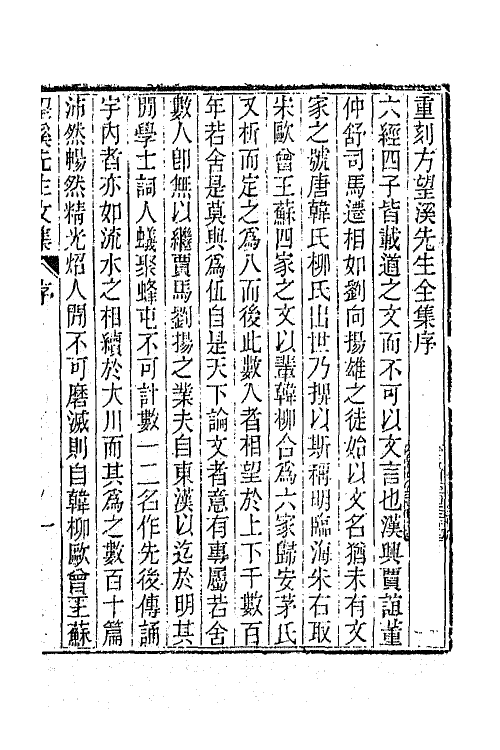 重刻方望溪先生全集序
六經四子皆載道之文而不可以文言也漢興賈誼董
仲舒司馬遷相如劉向揚雄之徒始以文名猶未有文
家之號唐韓氏柳氏出世乃撰以斯稱明臨海朱右取
宋歐曾王蘇四家之文以輩韓柳合爲六家歸安茅氏
又析而定之爲八而後此數人者相望於上下千數百
年若舍是莫與爲伍自是天下論文者意有專屬若舍
數人卽無以繼賈馬劉揚之業夫自東漢以迄於明其
閒學士詞人蟻聚蜂屯不可計數一二名作先後傳誦
宇內者亦如流水之相續於大川而其爲之數百十篇
沛然暢然精光炤人閒不可磨滅則自韓柳歐曾王蘇
望溪先生文集
序
一